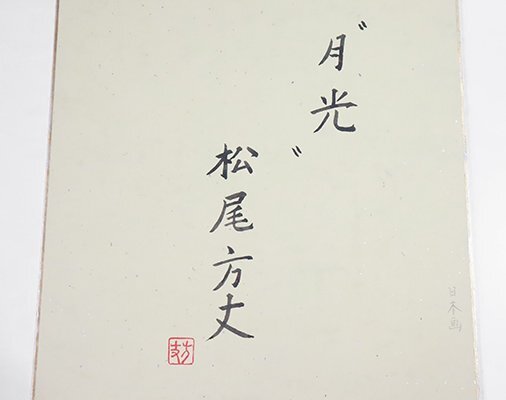 〝月光〟
松尾方丈
日本画